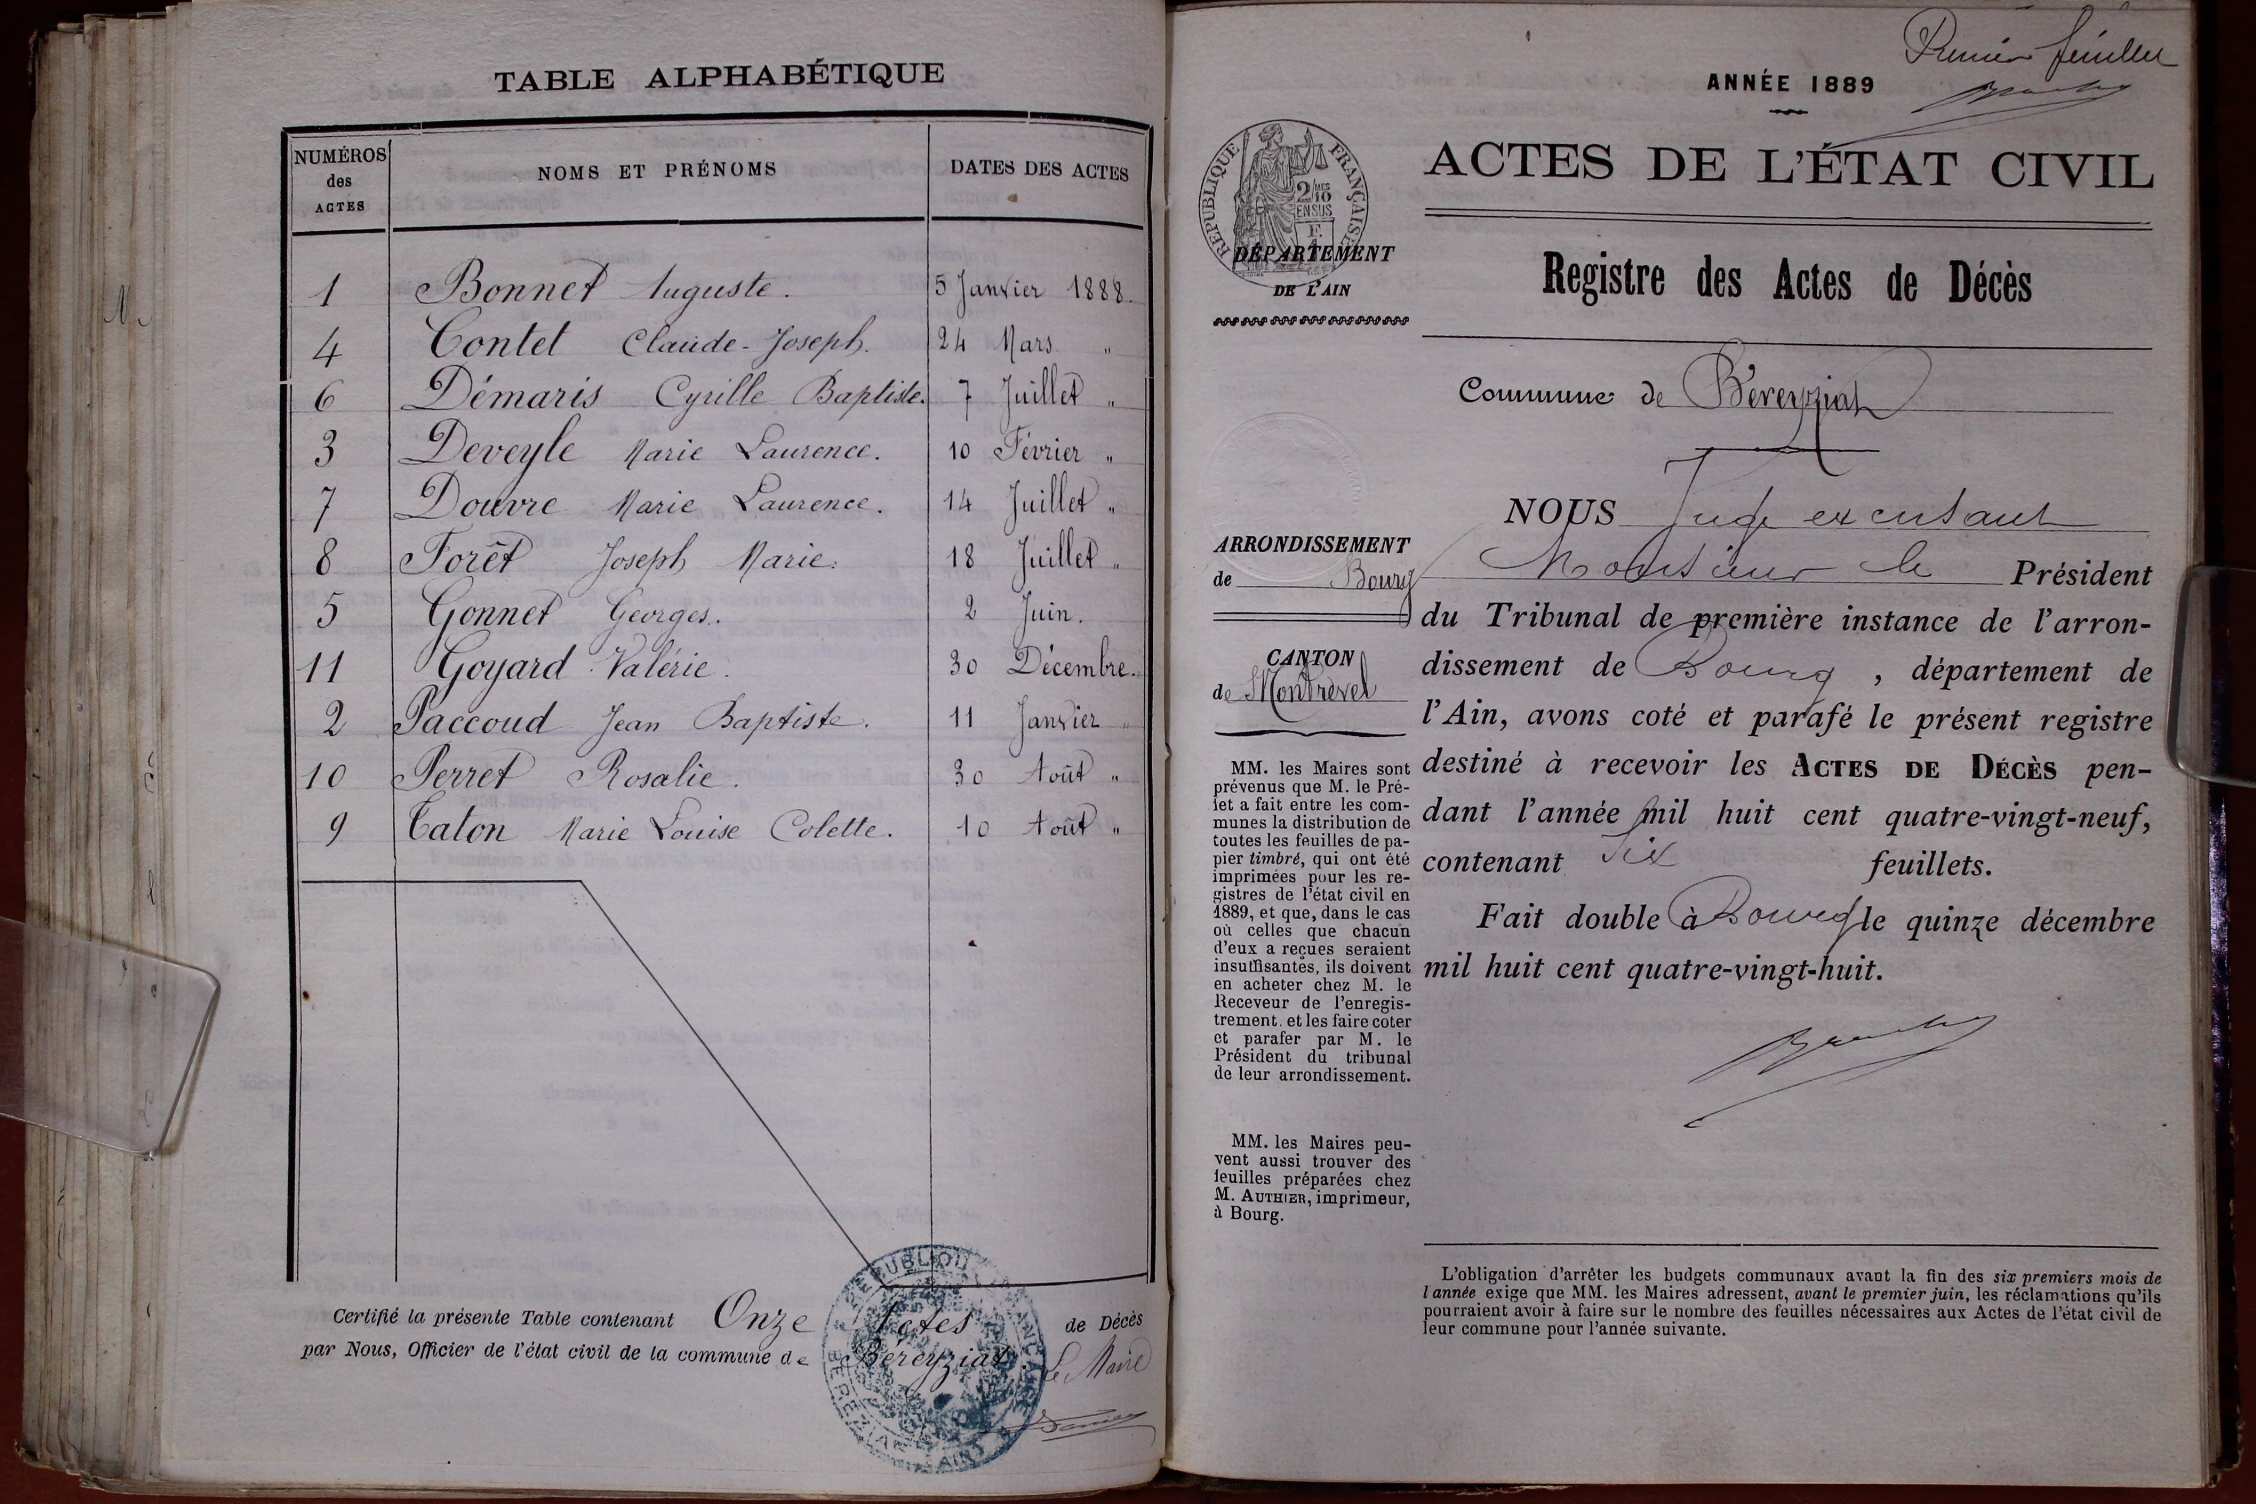 TABLE ALPHABÉTIQUE
NUMÉROS des ACTES NOMS ET PRÉNOMS DATES DES ACTES
1 Bonnet Auguste. 5 Janvier 1888.
4 Contet Claude-Joseph. 24 Mars "
6 Démaris Cyrille Baptiste. 7 Juillet "
3 Deveyle Marie Laurence. 10 Février "
7 Douvre Marie Laurence. 14 Juillet "
8 Forêt Joseph Marie. 18 Juillet "
5 Gonnet Georges. 2 Juin.
11 Goyard Valérie. 30 Décembre.
2 Paccoud Jean Baptiste. 11 Janvier "
10 Perret Rosalie. 30 Août "
9 Caton Marie Louise Colette. 10 Août "
Certifié la présente Table contenant Onze Actes de Décès
par Nous, Officier de l'état civil de la commune de Béreyziat. Le Maire
Premier feuillet
ANNÉE 1889
RÉPUBLIQUE FRANÇAISE
2/10 MES
EN SUS
ACTES DE L'ÉTAT CIVIL
DÉPARTEMENT
DE L'AIN
Registre des Actes de Décès
Commune de Béreyziat
ARRONDISSEMENT
de Bourg
CANTON
de Montrevel
MM. les Maires sont
prévenus que M. le Pré-
fet a fait entre les com-
munes la distribution de
toutes les feuilles de pa-
pier timbré, qui ont été
imprimées pour les re-
gistres de l'état civil en
1889, et que, dans le cas
où celles que chacun
d'eux a reçues seraient
insuffisantes, ils doivent
en acheter chez M. le
Receveur de l'enregis-
trement, et les faire coter
et parafer par M. le
Président du tribunal
de leur arrondissement.
MM. les Maires peu-
vent aussi trouver des
feuilles préparées chez
M. AUTHIER, imprimeur,
à Bourg.
NOUS Juge excusant
Monsieur le Président
du Tribunal de première instance de l'arron-
dissement de Bourg, département de
l'Ain, avons coté et parafé le présent registre
destiné à recevoir les ACTES DE DÉCÈS pen-
dant l'année mil huit cent quatre-vingt-neuf,
contenant six feuillets.
Fait double à Bourg le quinze décembre
mil huit cent quatre-vingt-huit.
L'obligation d'arrêter les budgets communaux avant la fin des six premiers mois de
l'année exige que MM. les Maires adressent, avant le premier juin, les réclamations qu'ils
pourraient avoir à faire sur le nombre des feuilles nécessaires aux Actes de l'état civil de
leur commune pour l'année suivante.